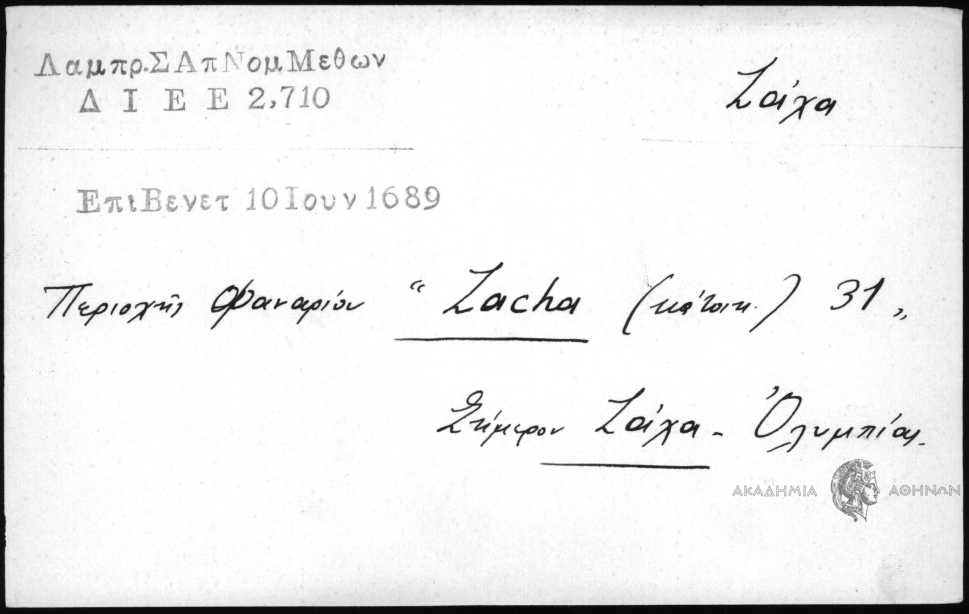 Λαμπρ.ΣΑπΝομΜεθων
Δ Ι Ε Ε 2,710
Ζάχα
ΕπιΒενετ 10Ιουν1689
Περιοχῆς Φαναρίου " Zacha (κάτοικ.) 31 "
Σήμερον Ζάχα - Ὀλυμπίας.
ΑΚΑΔΗΜΙΑ ΑΘΗΝΩΝ